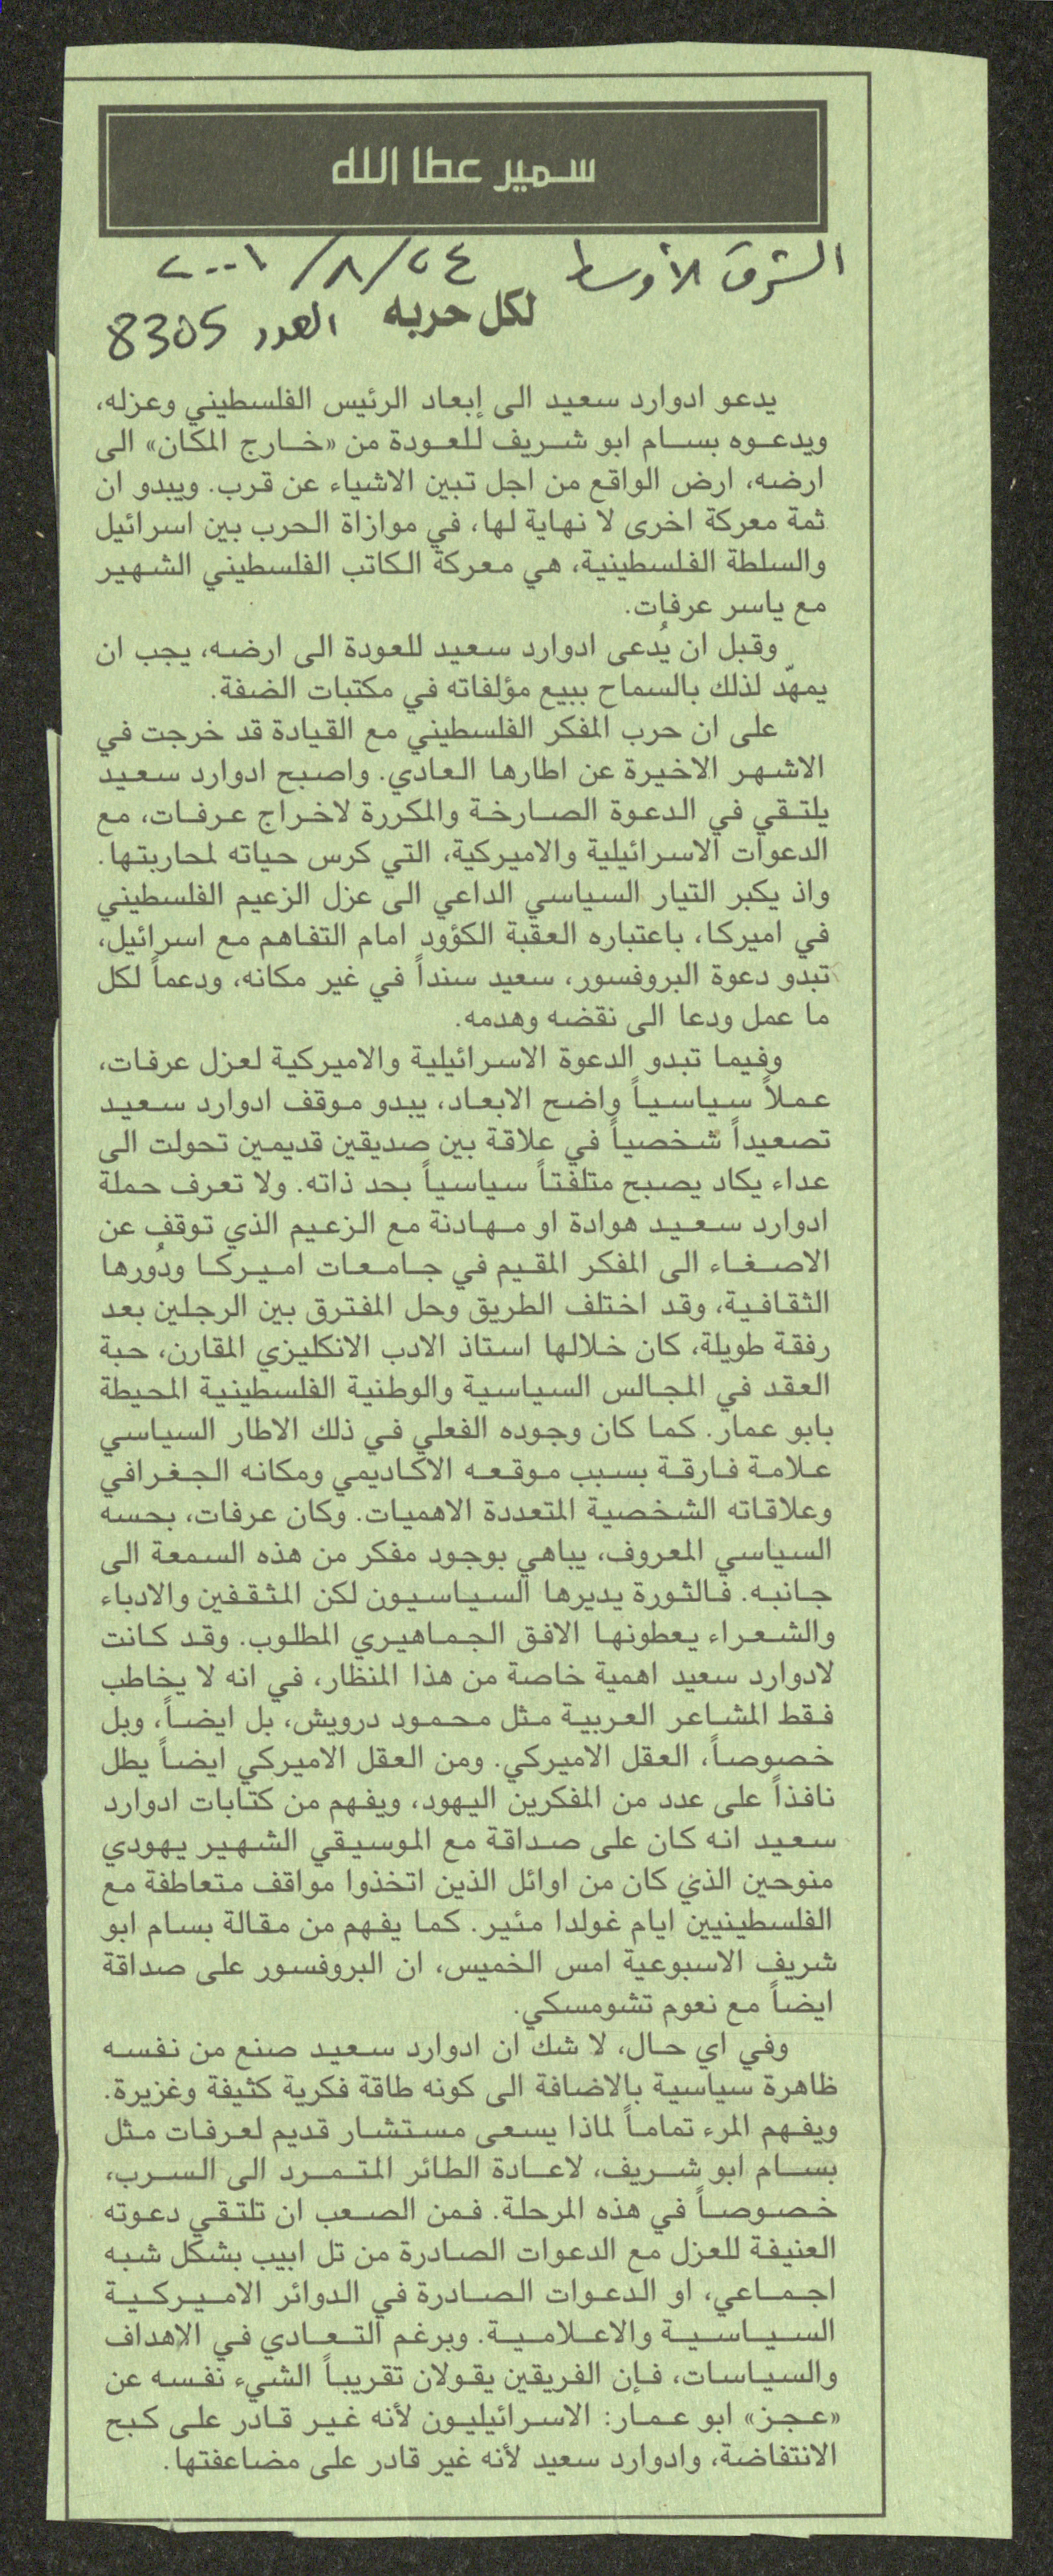 سمير عطا الله
الشرق الأوسط ٢٤/٨/٢٠٠١
لكل حربه العدد 8305
يدعو ادوارد سعيد الى إبعاد الرئيس الفلسطيني وعزله،
ويدعوه بسام ابو شريف للعودة من «خارج المكان» الى
ارضه، ارض الواقع من اجل تبين الاشياء عن قرب. ويبدو ان
ثمة معركة اخرى لا نهاية لها، في موازاة الحرب بين اسرائيل
والسلطة الفلسطينية، هي معركة الكاتب الفلسطيني الشهير
مع ياسر عرفات.
وقبل ان يُدعى ادوارد سعيد للعودة الى ارضه، يجب ان
يمهّد لذلك بالسماح ببيع مؤلفاته في مكتبات الضفة.
على ان حرب المفكر الفلسطيني مع القيادة قد خرجت في
الاشهر الاخيرة عن اطارها العادي. واصبح ادوارد سعيد
يلتقي في الدعوة الصارخة والمكررة لاخراج عرفات، مع
الدعوات الاسرائيلية والاميركية، التي كرس حياته لمحاربتها.
واذ يكبر التيار السياسي الداعي الى عزل الزعيم الفلسطيني
في اميركا، باعتباره العقبة الكؤود امام التفاهم مع اسرائيل،
تبدو دعوة البروفسور، سعيد سنداً في غير مكانه، ودعماً لكل
ما عمل ودعا الى نقضه وهدمه.
وفيما تبدو الدعوة الاسرائيلية والاميركية لعزل عرفات،
عملاً سياسياً واضح الابعاد، يبدو موقف ادوارد سعيد
تصعيداً شخصياً في علاقة بين صديقين قديمين تحولت الى
عداء يكاد يصبح متلفتاً سياسياً بحد ذاته. ولا تعرف حملة
ادوارد سعيد هوادة او مهادنة مع الزعيم الذي توقف عن
الاصغاء الى المفكر المقيم في جامعات اميركا ودُورها
الثقافية، وقد اختلف الطريق وحل المفترق بين الرجلين بعد
رفقة طويلة، كان خلالها استاذ الادب الانكليزي المقارن، حبة
العقد في المجالس السياسية والوطنية الفلسطينية المحيطة
بابو عمار. كما كان وجوده الفعلي في ذلك الاطار السياسي
علامة فارقة بسبب موقعه الاكاديمي ومكانه الجغرافي
وعلاقاته الشخصية المتعددة الاهميات. وكان عرفات، بحسه
السياسي المعروف، يباهي بوجود مفكر من هذه السمعة الى
جانبه. فالثورة يديرها السياسيون لكن المثقفين والادباء
والشعراء يعطونها الافق الجماهيري المطلوب. وقد كانت
لادوارد سعيد اهمية خاصة من هذا المنظار، في انه لا يخاطب
فقط المشاعر العربية مثل محمود درويش، بل ايضاً، وبل
خصوصاً، العقل الاميركي. ومن العقل الاميركي ايضاً يطل
نافذاً على عدد من المفكرين اليهود، ويفهم من كتابات ادوارد
سعيد انه كان على صداقة مع الموسيقي الشهير يهودي
منوحين الذي كان من اوائل الذين اتخذوا مواقف متعاطفة مع
الفلسطينيين ايام غولدا مئير. كما يفهم من مقالة بسام ابو
شريف الاسبوعية امس الخميس، ان البروفسور على صداقة
ايضاً مع نعوم تشومسكي.
وفي اي حال، لا شك ان ادوارد سعيد صنع من نفسه
ظاهرة سياسية بالاضافة الى كونه طاقة فكرية كثيفة وغزيرة.
ويفهم المرء تماماً لماذا يسعى مستشار قديم لعرفات مثل
بسام ابو شريف، لاعادة الطائر المتمرد الى السرب،
خصوصاً في هذه المرحلة. فمن الصعب ان تلتقي دعوته
العنيفة للعزل مع الدعوات الصادرة من تل ابيب بشكل شبه
اجماعي، او الدعوات الصادرة في الدوائر الاميركية
السياسية والاعلامية. وبرغم التعادي في الاهداف
والسياسات، فإن الفريقين يقولان تقريباً الشيء نفسه عن
«عجز» ابو عمار: الاسرائيليون لأنه غير قادر على كبح
الانتفاضة، وادوارد سعيد لأنه غير قادر على مضاعفتها.